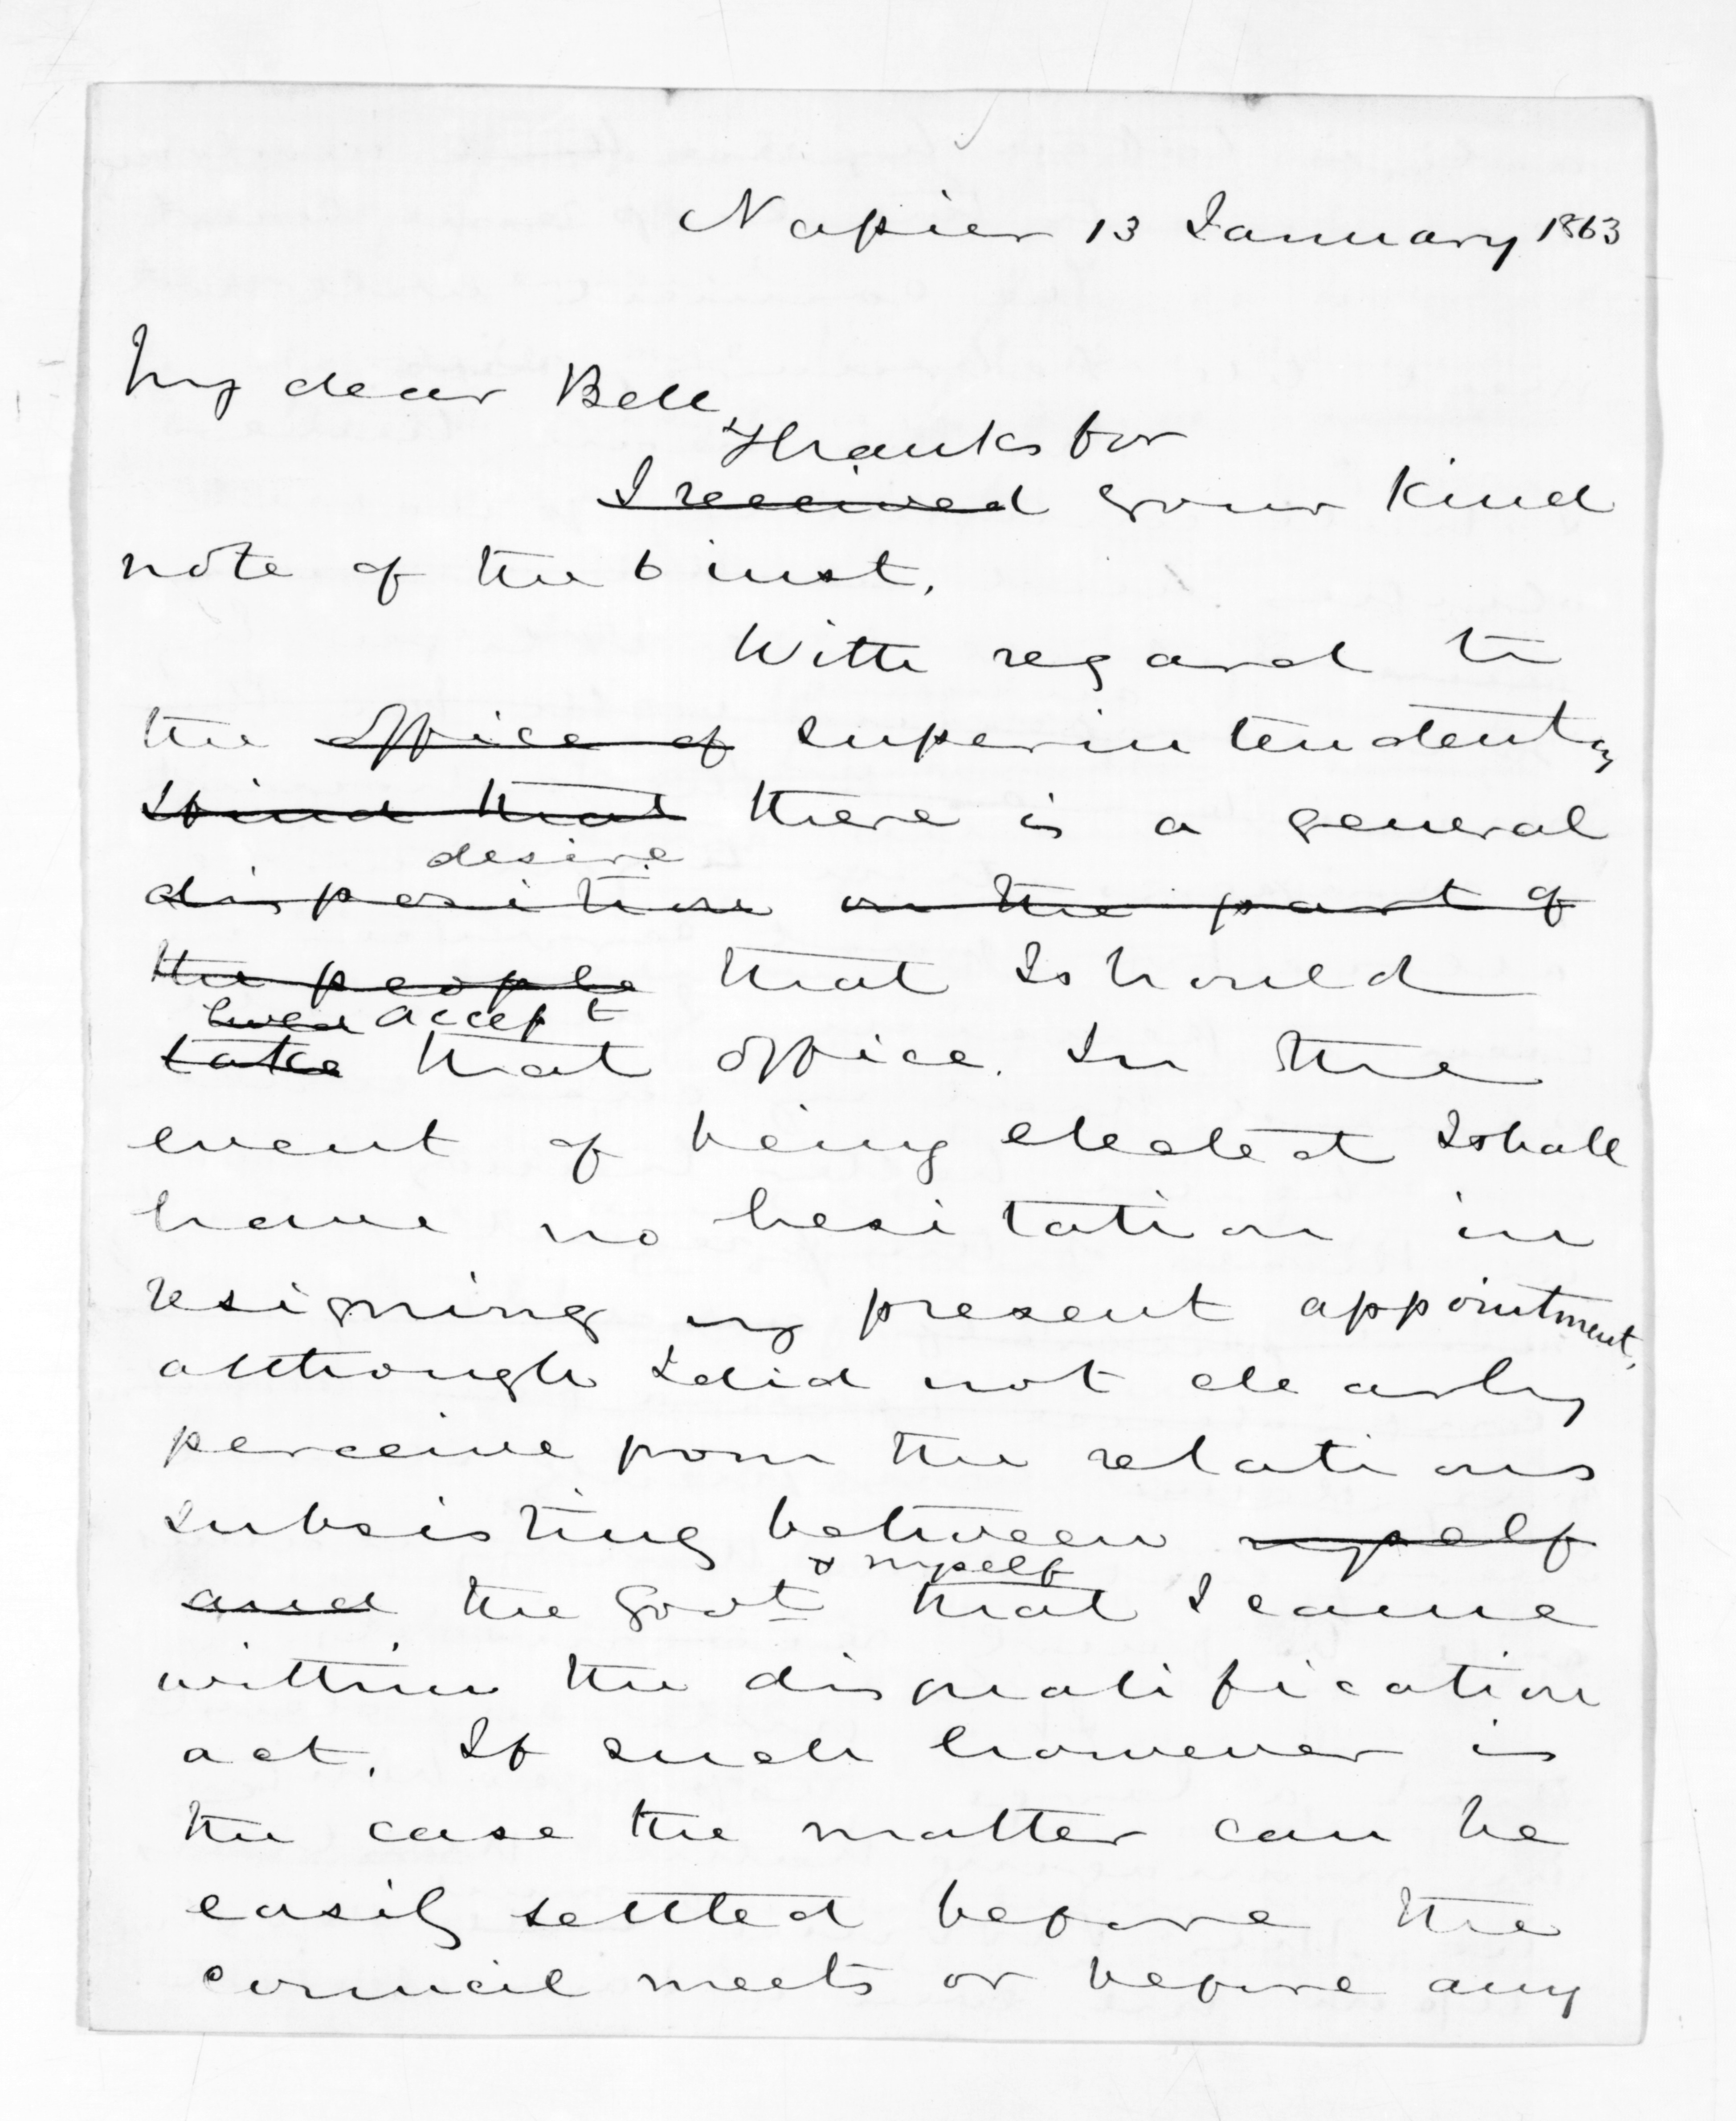 Napier 13 January 1863
My dear Bell,
Thanks for
I received your kind
note of the 6 inst.
With regard to
the office of superintendency
I find that there is a general
desire
disposition on the part of
the people that I should
accept
take that office. In the
event of being elected I shall
have no hesitation in
resigning my present appointment,
although I did not clearly
perceive from the relations
subsisting between myself
& myself
and the Govt that I came
within the disqualification
act. If such however is
the case the matter can be
easily settled before the
council meets or before any